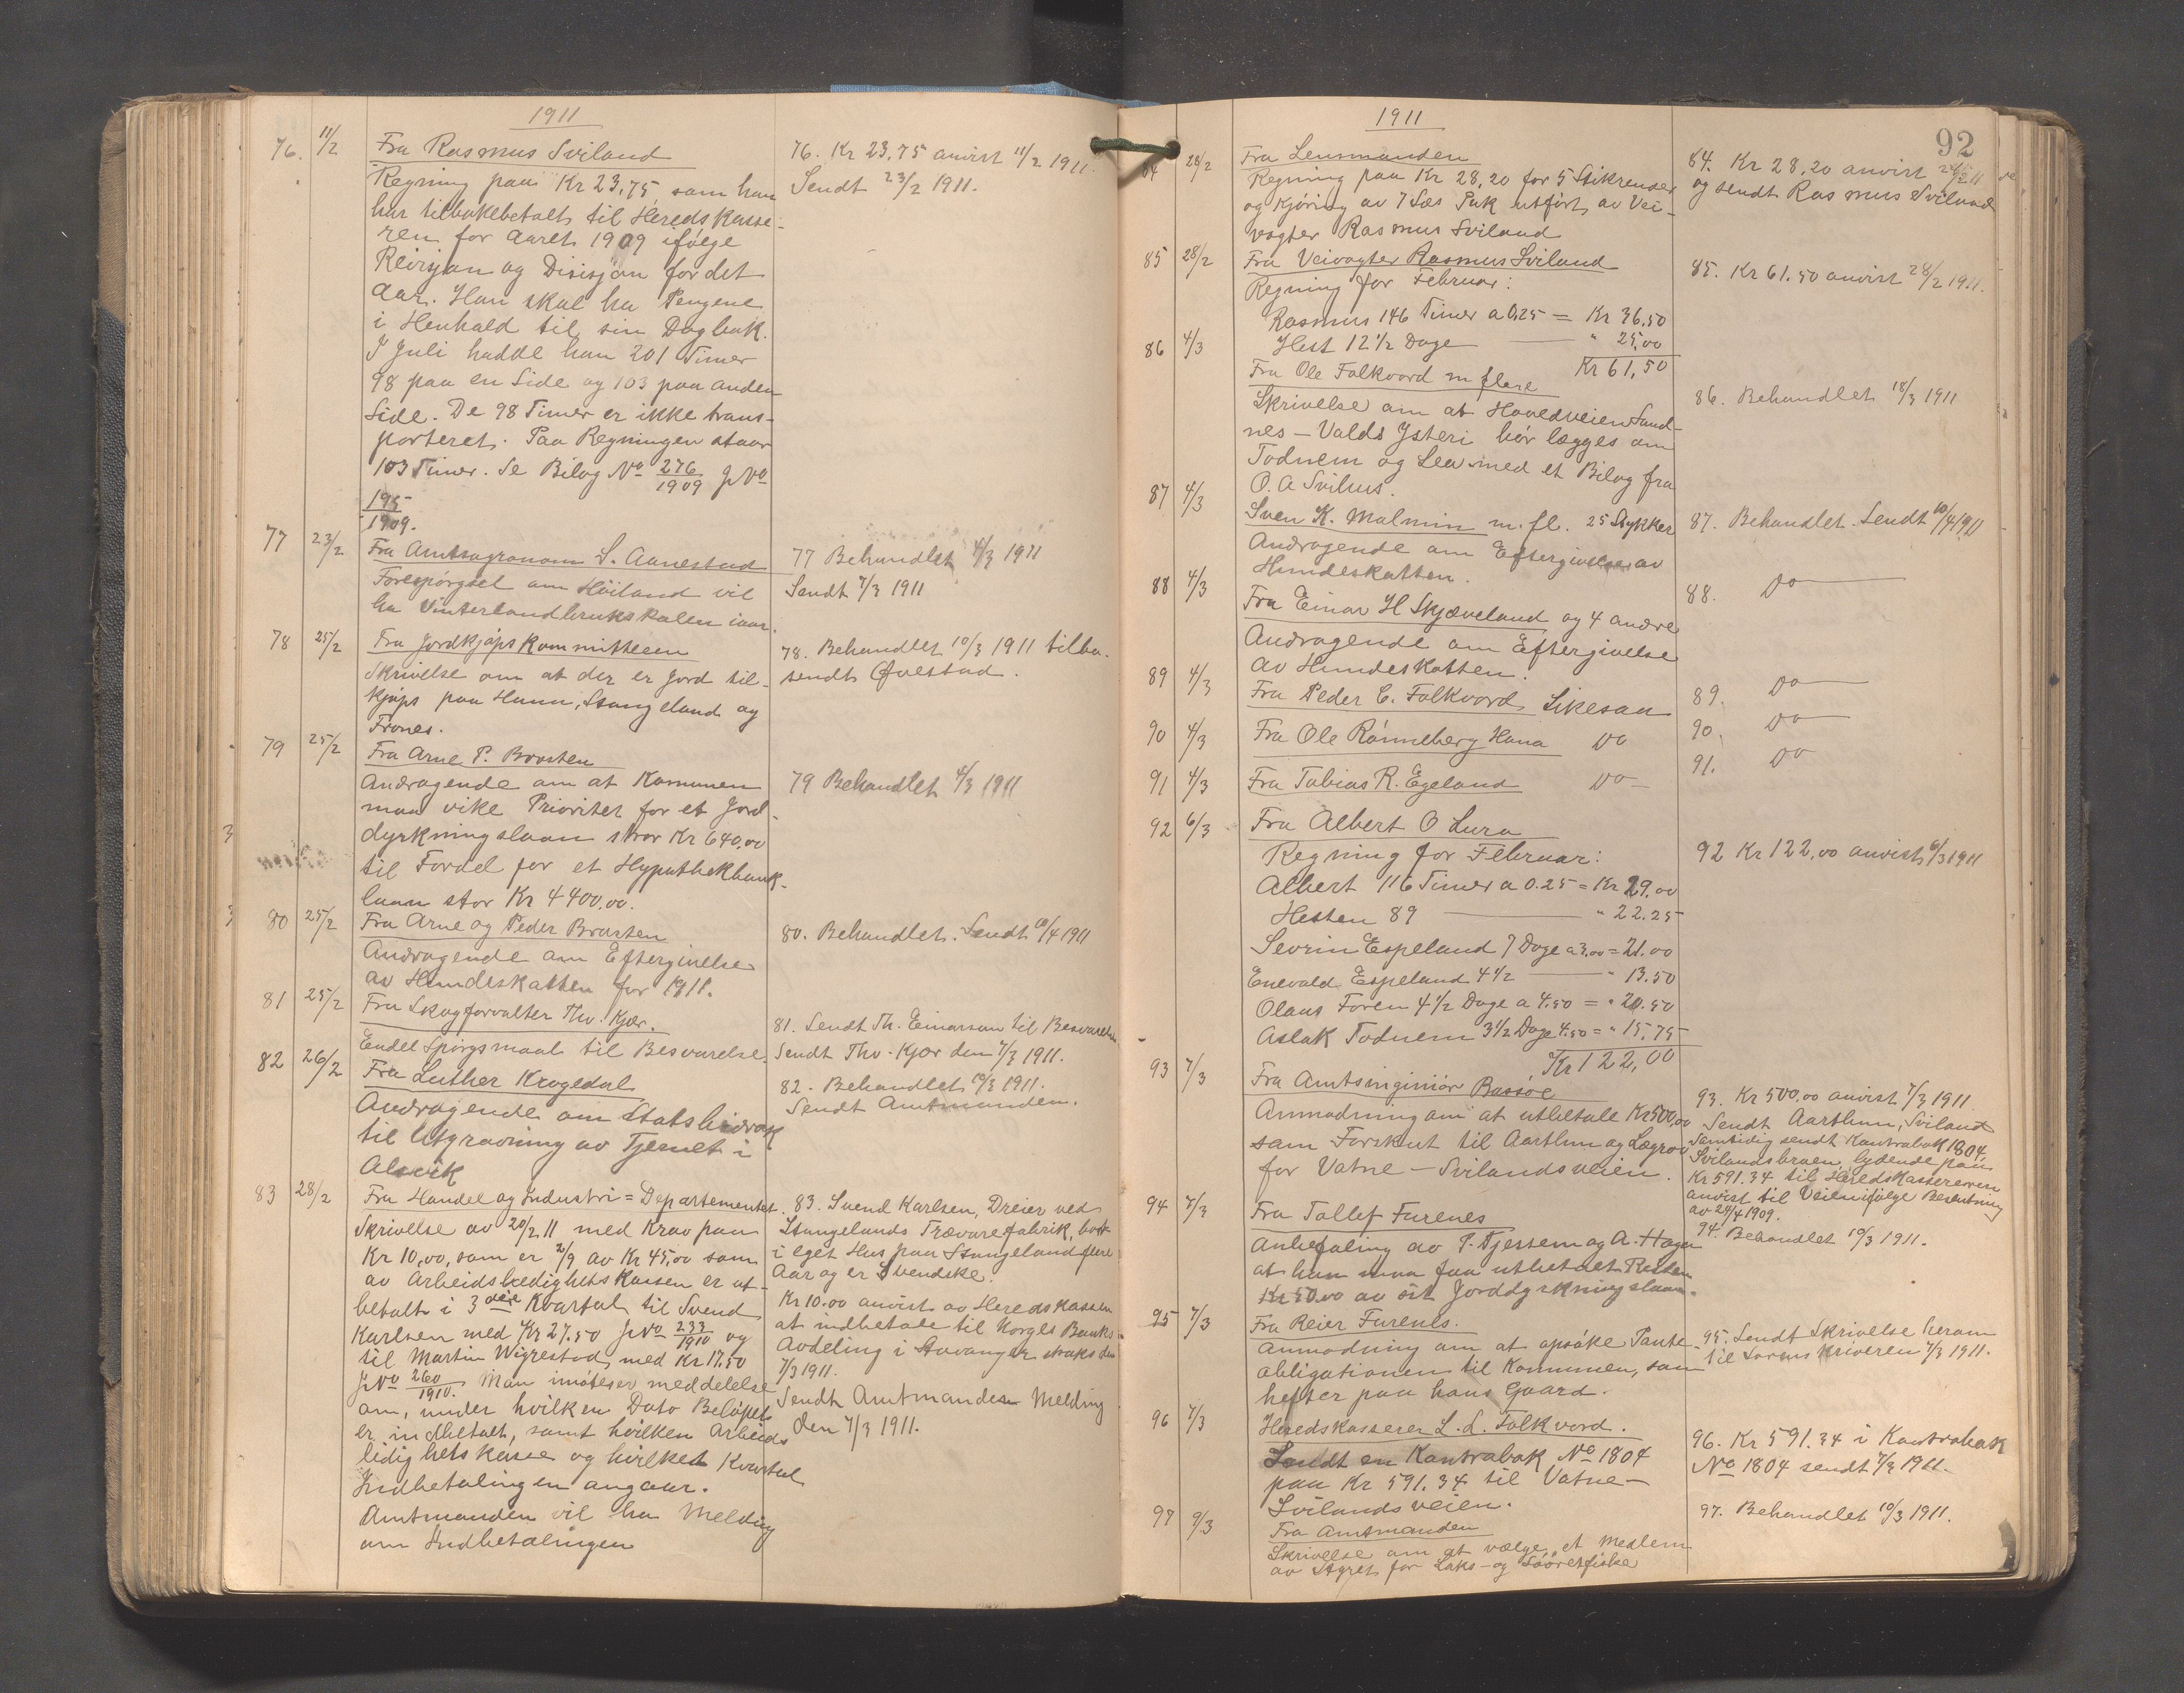 1911
76. 11/2 Fra Rasmus Sviland
Regning paa Kr 23,75, som han
har tilbakebetalt til Heredskasse-
ren for Aaret 1909 ifølge
Revisjon og Disisjon for det
Aar. Han skal ha Pengene
i Henhold til sin Dagbok.
I Juli hadde han 201 Timer
98 paa en Side og 103 paa anden
Side. De 98 Timer er ikke trans-
porteret. Paa Regningen staar
103 Timer. Se Bilag No 276/1909 JNo
195/1909.
76. Kr 23,75 anvist 11/2 1911.
Sendt 23/2 1911.
77 23/2 Fra Amtsagronom S. Aanestad
Forespørgsel om Höiland vil
ha Vinterlandbruksskolen iaar.
77 Behandlet 4/3 1911
Sendt 7/3 1911
78 25/2 Fra Jordkjøpskommitteen
Skrivelse om at der er Jord til-
kjøps paa Hann, Stangeland og
Frones.
78. Behandlet 10/3 1911 tilba-
sendt Qvestad.
79 25/2 Fra Arne P. Brosten
Andragende om at Kommunen
maa vike Prioritet for et Jord-
dyrkningslaan stor Kr 640,00
til Fordel for et Hypothekbank-
laan stor Kr 4400,00.
79 Behandlet 4/3 1911
80 25/2 Fra Arne og Peder Brosten
Andragende om Eftergivelse
av Hundeskatten for 1911.
80. Behandlet. Sendt 10/4 1911
81 25/2 Fra Skogforvalter Thv. Kjær.
Endel Spørgsmaal til Besvarelse.
81. Sendt Th. Einarson til Besvarelse
Sendt Thv. Kjær den 7/3 1911.
82 26/2 Fra Luther Krogedal
Andragende om Statsbidrag
til Utgravning av Tjernet i
Alsvik
82. Behandlet 10/3 1911.
Sendt Amtmanden.
83 28/2 Fra Handel og Industri=Departementet.
Skrivelse av 20/2 11 med Krav paa
Kr 10,00, som er 2/9 av Kr 45,00 som
av Arbeidsledighetskassen er ut-
betalt i 3die Kvartal til Svend
Karlsen med Kr 27.50 JNo 233/1910 og
til Martin Wigrestad med Kr 17,50
JNo 260/1910. Man imøteser meddelelse
om, under hvilken Dato Beløpet
er indbetalt, samt hvilken Arbeids
ledighetskasse og hvilket Kvartal
Indbetalingen angaar.
Amtmanden vil ha Melding
om Indbetalingen
83. Svend Karlsen, Dreier ved
Stangelands Trævarefabrik, bodd
i eget Hus paa Stangeland flere
Aar og er Svendske.
Kr 10.00 anvist av Heredskassen
at indbetale til Norges Banks
Avdeling i Stavanger straks den
7/3 1911.
Sendt Amtmanden Melding
den 7/3 1911.
1911
92
84 28/2 Fra Lensmanden
Regning paa Kr 28,20 for 5 Stikrenser
og Kjøring av 7 Læs Puk utført av Vei-
vogter Rasmus Sviland
84. Kr 28,20 anvist 28/2 11
og sendt Rasmus Sviland
85 28/2 Fra Veivogter Rasmus Sviland
Regning for Februar:
Rasmus 146 Timer a 0,25 = Kr 36,50
Hest 12 1/2 Dage — " 25,00
Kr 61,50
85. Kr 61.50 anvist 28/2 1911.
86 4/3 Fra Ole Folkvord m flere
Skrivelse om at Hovedveien Sand-
nes – Valds Ysteri bør lægges om
Todnem og Lea med et Bilag fra
O. A Svihus.
86. Behandlet 18/3 1911
87 4/3 Sven K. Malmin m. fl. 25 Stykker
Andragende om Eftergivelse av
Hundeskatten.
87. Behandlet. Sendt 10/4 1911
88 4/3 Fra Einar H Skjæveland og 4 andre
Andragende om Eftergivelse
av Hundeskatten.
88. Do —
89 4/3 Fra Peder E. Folkvord Likesaa
89. Do —
90 4/3 Fra Ole Rønneberg Hana Do
90. Do —
91 4/3 Fra Tobias R. Egeland Do —
91. Do
92 6/3 Fra Albert O Lura
Regning for Februar:
Albert 116 Timer a 0.25 = Kr 29.00
Hesten 89 — " 22.25
Sevrin Espeland 7 Dage a 3,00 = 21.00
Enevald Espeland 4 1/2 — " 13.50
Olaus Foren 4 1/2 Dage a 4.50 = " 20.50
Aslak Todnem 3 1/2 Dage 4.50 = " 15,75
Kr 122,00
92 Kr 122,00 anvist 6/3 1911
93 7/3 Fra Amtsinginiør Bassøe
Anmodning om at utbetale Kr 500,00
som Forskut til Aarthun og Lægrov
for Vatne – Svilandsveien.
93. Kr 500,00 anvist 7/3 1911
Sendt Aarthun, Sviland
Samtidig sendt Kontrabok 1804
Svilandsbroen, lydende paa
Kr 591.34 til Heredskassereren
anvist til Veien ifølge Beslutning
av 29/4 1909.
94 7/3 Fra Tollef Furenes
Anbefaling av T. Tjessem og A. Hagen
at han maa faa utbetalt Resten
Kr 50,00 av sit Jorddyrkningslaan.
94. Behandlet 10/3 1911.
95 7/3 Fra Reier Furenes.
Anmodning om at opsøke Pante-
obligationen til Kommunen, som
hefter paa hans Gaard.
95. Sendt Skrivelse herom
til Sorenskriveren 7/3 1911.
96 7/3 Heredskasserer L. L. Folkvord.
Sendt en Kontrabok No 1804
paa Kr 591.34 til Vatne –
Svilandsveien.
96. Kr 591.34 i Kontrabok
No 1804 sendt 7/3 1911.
97 9/3 Fra Amtmanden
Skrivelse om at vælge et Medlem
av Styret for Laks – og Sjøøretfiske
97. Behandlet 10/3 1911.